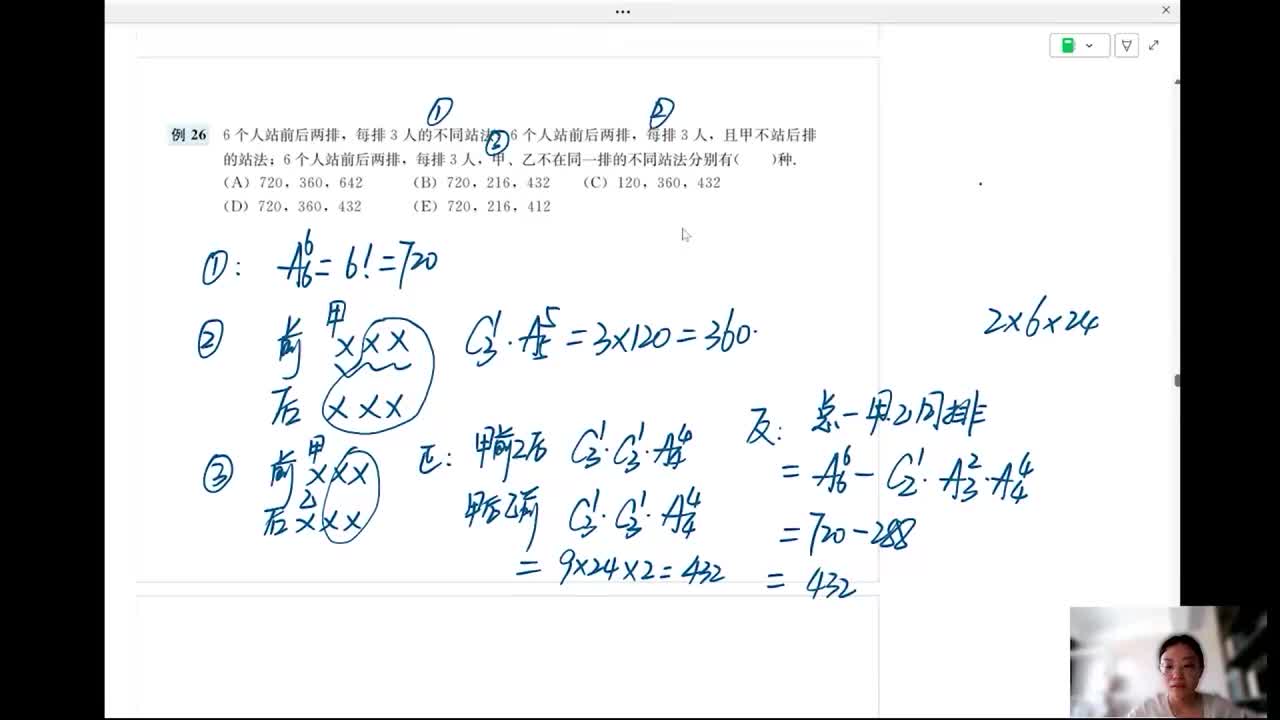 例 26 6 个人站前后两排，每排 3 人的不同站法；6 个人站前后两排，每排 3 人，且甲不站后排
的站法；6 个人站前后两排，每排 3 人，甲、乙不在同一排的不同站法分别有（　　）种.
（A）720，360，642 （B）720，216，432 （C）120，360，432
（D）720，360，432 （E）720，216，412
① ② ②
①： A₆⁶ = 6! = 720
② 前 甲 × × × C₃¹·A₅⁵ = 3×120 = 360
后 × × ×
2×6×24
③ 前 甲 × × ×
后 乙 × × ×
正： 甲前乙后 C₃¹·C₃¹·A₄⁴
甲后乙前 C₃¹·C₃¹·A₄⁴
= 9×24×2 = 432
反： 总－甲乙同排
= A₆⁶ － C₂¹·A₃²·A₄⁴
= 720 － 288
= 432